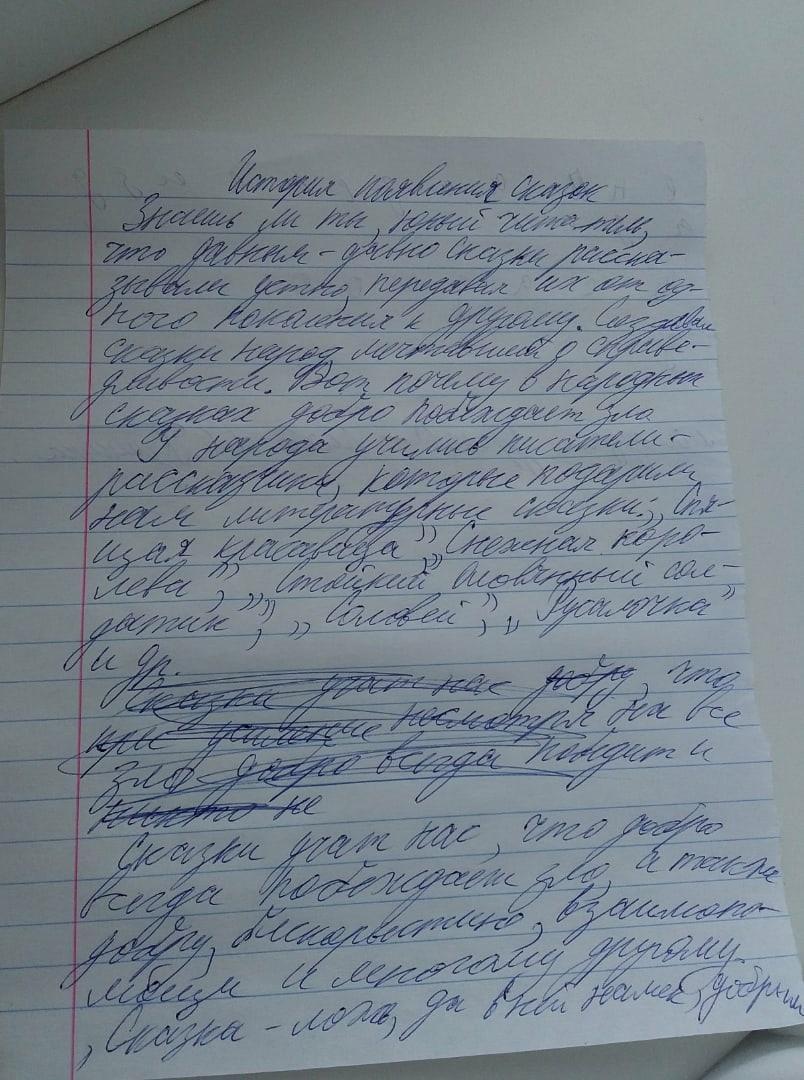 История появления сказок
Знаешь ли ты, юный читатель,
что давным-давно сказки расска-
зывали устно, передавая их от од-
ного поколения к другому. Создавал
сказки народ, мечтавший о справе-
дливости. Вот почему в народных
сказках добро побеждает зло
У народа учились писатели-
рассказчики, которые подарили
нам литературные сказки: „Спя-
щая красавица", „Снежная коро-
лева", „Стойкий оловянный сол-
датик", „Соловей", „Русалочка"
и др.
Сказки учат нас добру, что
несмотря на все
зло добро всегда победит и
никто не
Сказки учат нас, что добро
всегда побеждает зло, а также
добру, бескорыстию, взаимопо-
мощи и многому другому.
„Сказка - ложь, да в ней намек, добрым